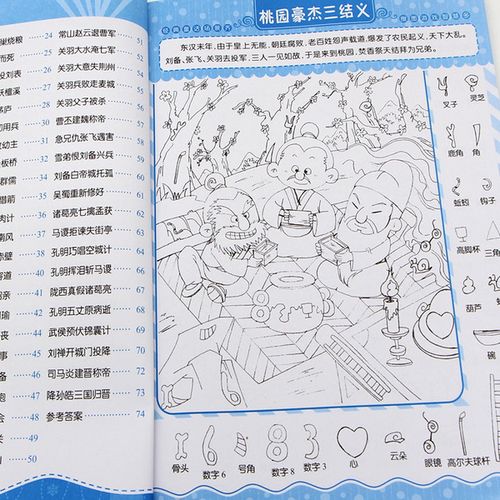 巢烧粮 24 常山赵云退曹军 51
而死 25 关羽大水淹七军 52
投刘表 26 关羽大意失荆州 53
跃檀溪 27 关羽兵败走麦城 54
茅庐 28 关羽父子被杀 55
用兵 29 曹丕建魏称帝 56
救幼主 30 急兄仇张飞遇害 57
板桥 31 雪弟恨刘备兴兵 58
群儒 33 刘备白帝城托孤 59
激周瑜 35 吴蜀重新修好 60
肉计 36 诸葛亮七擒孟获 61
南风 37 马谡拒谏失街亭 62
38 孔明巧唱空城计 63
39 孔明挥泪斩马谡 64
容道 40 陇西真假诸葛亮 65
招亲 41 孔明五丈原病逝 66
周瑜 42 武侯预伏锦囊计 67
43 刘禅开城门投降 68
事 45 司马炎建晋称帝 70
备 46 降孙皓三国归晋 72
47 参考答案 74
会 48
49
50
桃园豪杰三结义
东汉末年,由于皇上无能、朝廷腐败,老百姓怨声载道,爆发了农民起义,天下大乱。
刘备、张飞、关羽去投军,三人一见如故,于是来到桃园,焚香祭天结拜为兄弟。
叉子 灵芝
鹿角 角
蚯蚓 钩子
高脚杯 三角
葫芦
碗
骨头 数字6 号角 数字8 数字3 心 云朵 眼镜 高尔夫球杆